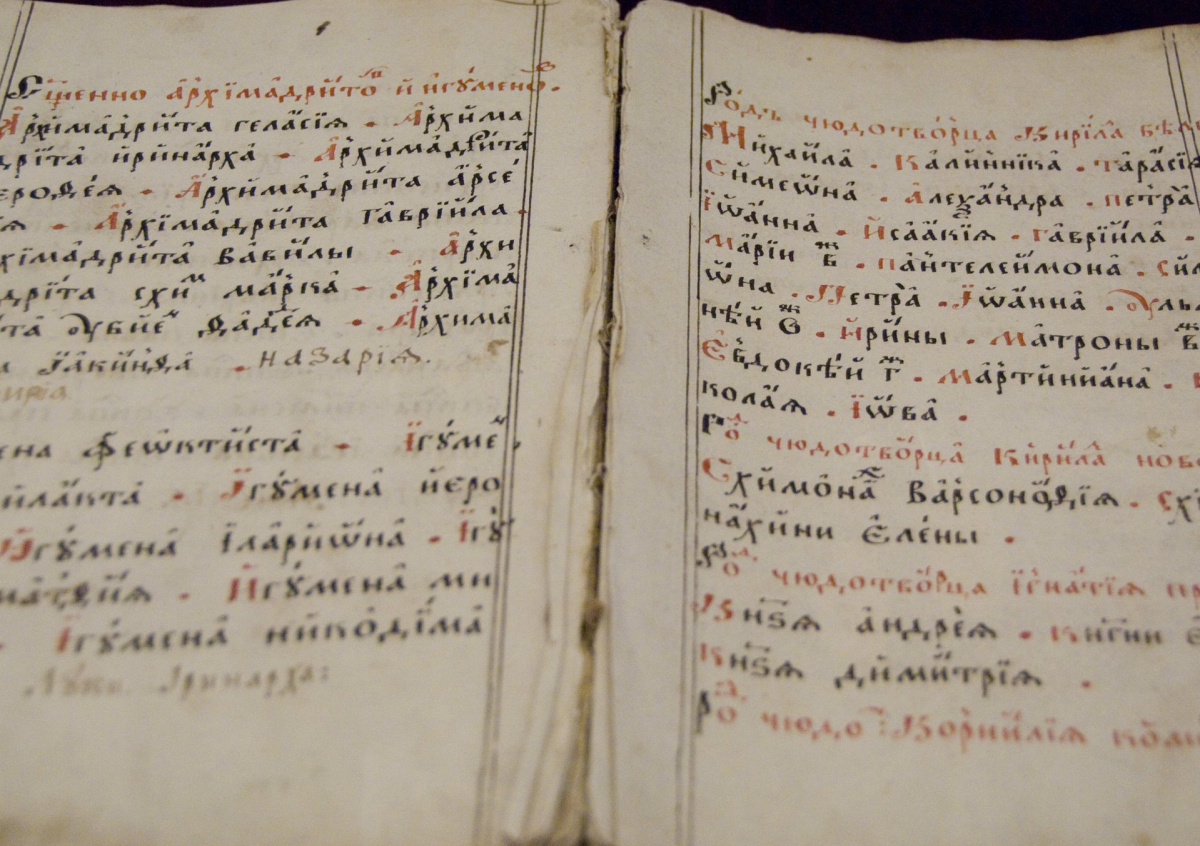 Сщ҃енно а҆рхїма́дри́то в҃ и҆ и҆гꙋ́мено в҃.
А҆рхи́ма́дри́та гела́сїѧ . А҆рхи́ма
дрї́та и҆рина́рха . А҆рхи́ма́дри́та
еродїѡ́нѧ . А҆рхи́ма́дри́та а҆рсе́
їѧ . А҆рхїма́дри́та гаврїи́ла .
хїма́дри́та вави́лы . А҆рхи
дрї́та схи́м ма́рка . А҆рхїма
та ᲂу҆бїе́н ѳадде́ѧ . А҆рхима́
а І҆аки́нѳа . назарїѧ .
ена ѳеѡкти́ста . І҆гꙋ́ме́
и҆ла́кта . І҆гꙋ́мена и҆еро
И҆гꙋ́мена і҆ларїѡ́на . І҆гꙋ́
матѳи́ѧ . И҆гꙋ́мена ми
. І҆гꙋ́мена нико́дїма
Луки Іринарха:
Ро́дъ чюдотво́рца Кири́ла бѣл
Михаи́ла . Кали́нника . тара́сїѧ
Симеѡ́на . Алеѯа́ндра . петра̀
І҆ѡа́нна . И҆саа́кїѧ . гаврїи́ла .
ма́рїи в҃ ж . пантелеи́мона . сил
ѡ҆на . Петра̀ . І҆ѡа́нна . ᲂу҆лья
нѣ́и ѳ҃ ж . и҆ри́ны . матроны в҃ ж
Е҆вдокѣ́и г҃ ж . марти́нїана .
кола́ѧ . І҆ѡва .
Ро́д чюдотво́рца Кири́ла ново
Схи́мона́х варсоно́фїѧ . схї
на́хини Е҆ле́ны .
Ро́д . чюдотво́рца і҆гна́тїѧ пр
Кнѕ҃ѧ андре́ѧ . кнг҃ини
Кнѕ҃ѧ дими́трїѧ .
Ро́д . чюдо Корни́лїѧ ком